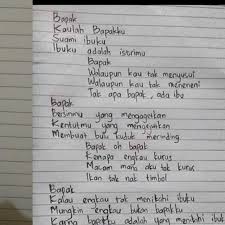 Bapak
Kaulah Bapakku
Suami ibuku
Ibuku adalah istrimu
Bapak
Walaupun kau tak menyusui
Walaupun kau tak meneneni
Tak apa bapak, ada ibu
Bapak
Bersinmu yang mengagetkan
Kentutmu yang mengejutkan
Membuat bulu kuduk merinding
Bapak oh bapak
Kenapa engkau kurus
Makan mans aku tak kurus
Ikan tak nak timbol
Bapak
Kalau engkau tak menikahi ibuku
Mungkin engkau bukan bapakku
Karna bapakku adalah yang menikahi ibuk